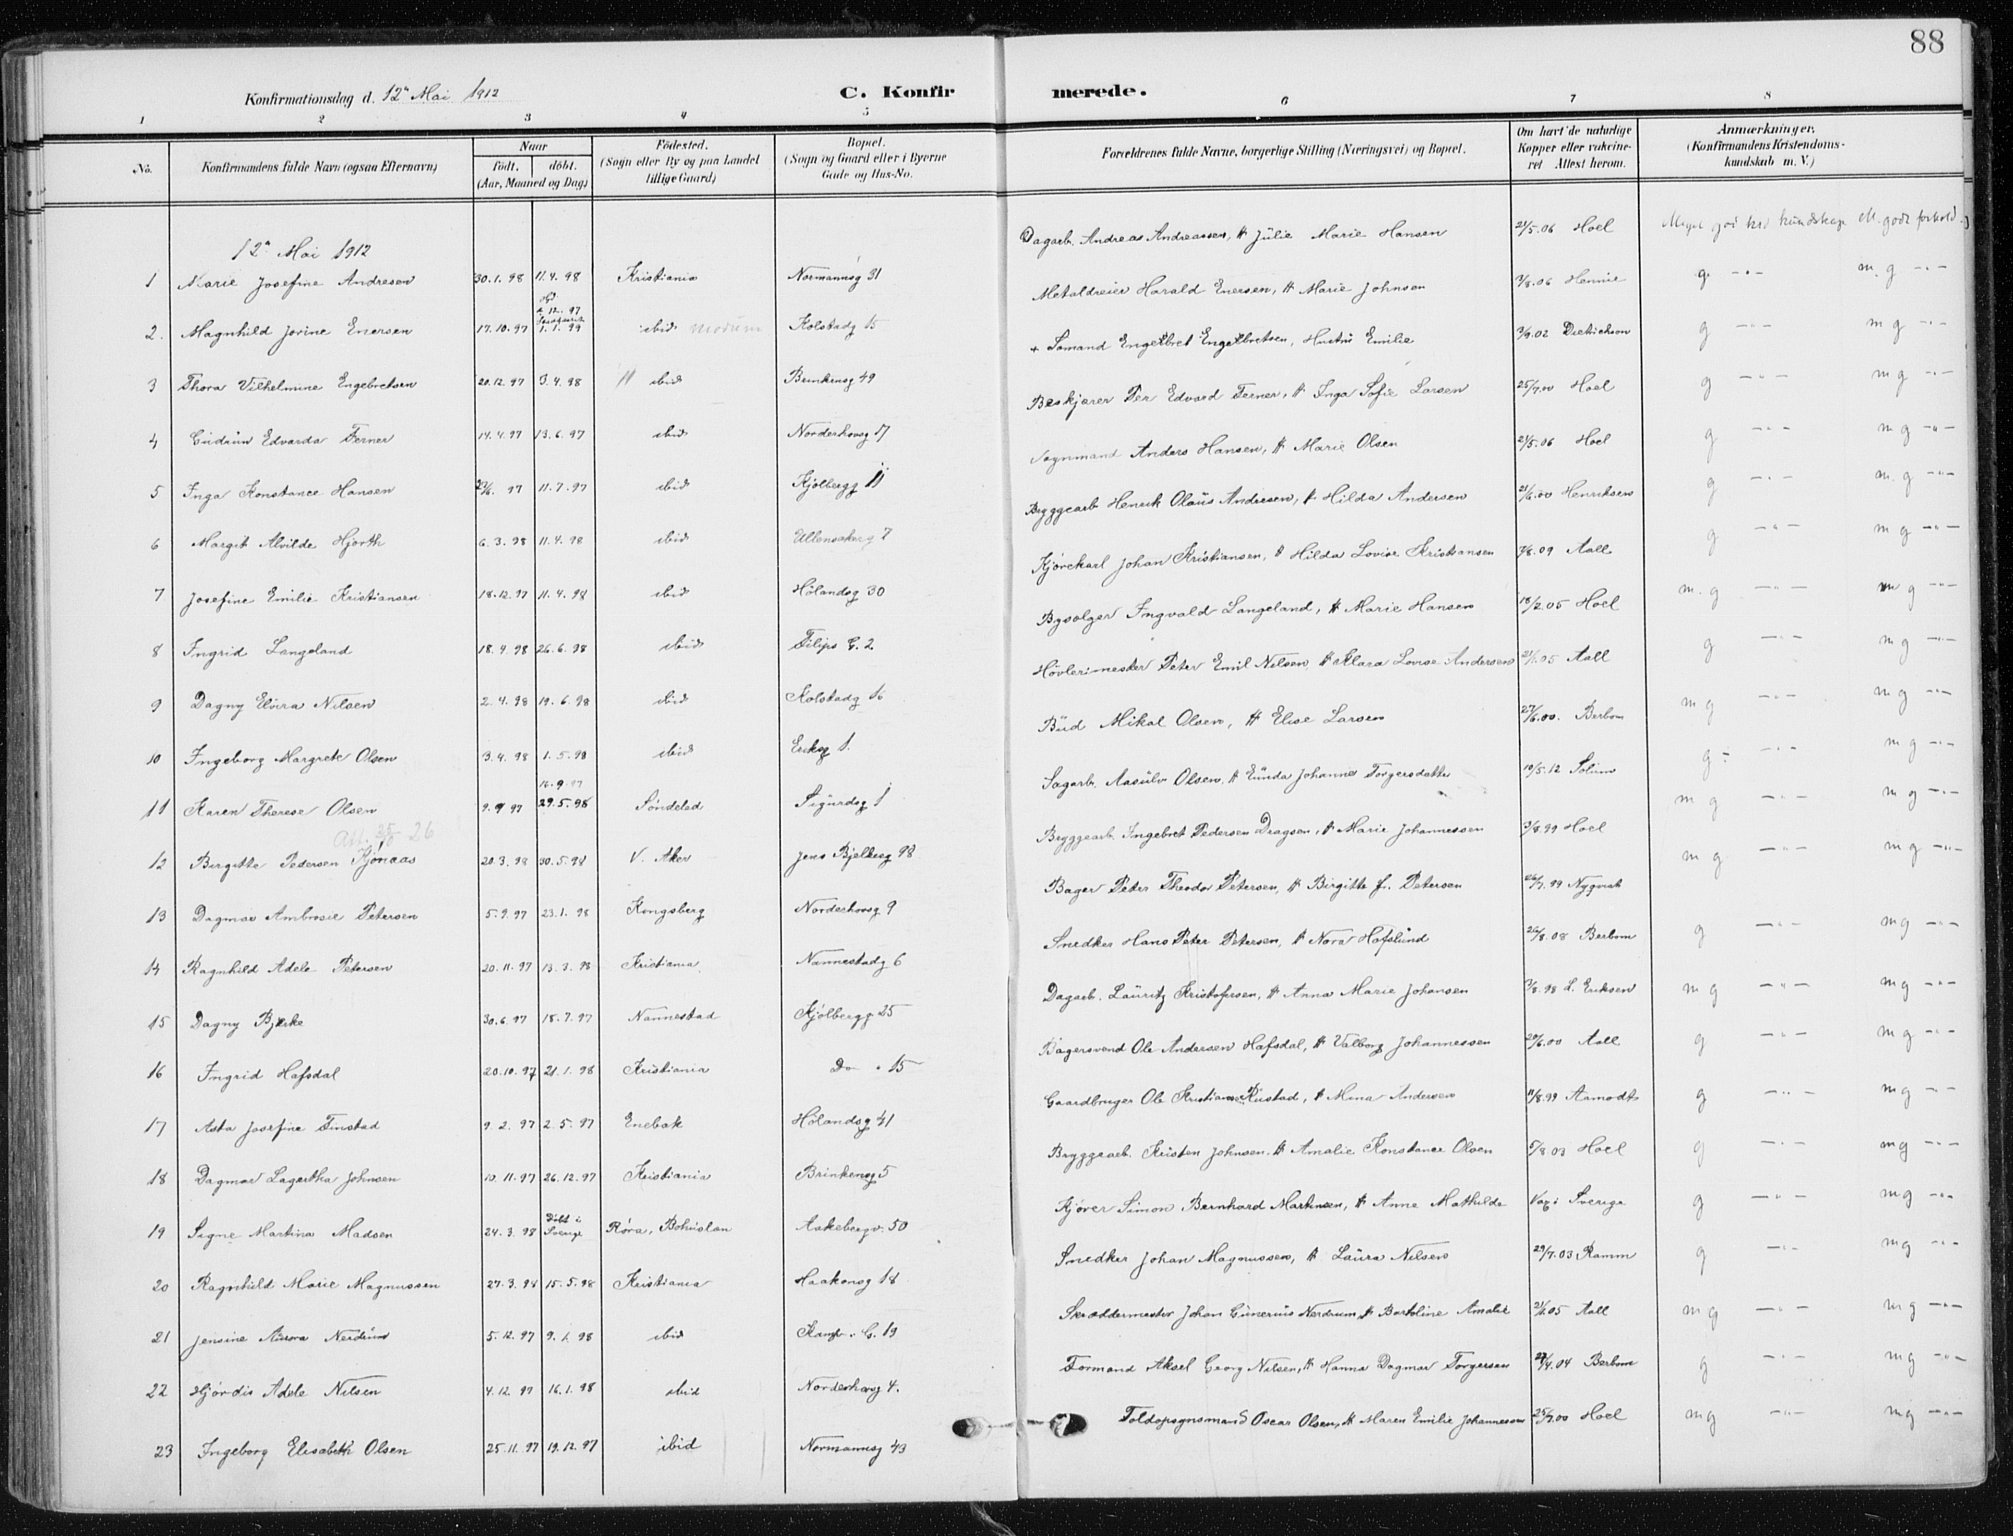 88
Konfirmationsdag d. 12te Mai 1912
C. Konfirmerede.
1 2 3 4 5 6 7 8
No. Konfirmandens fulde Navn (ogsaa Efternavn) Naar født. døbt. (Aar, Maaned og Dag) Fødested. (Sogn eller By og paa Landet tillige Gaard) Bopæl. (Sogn og Gaard eller i Byerne Gade og Hus-No. Forældrenes fulde Navne, borgerlige Stilling (Næringsvei) og Bopæl. Om havt de naturlige Kopper eller vaccineret Attest herom. Anmærkninger. (Konfirmandens Kristendomskundskab m. V.)
12te Mai 1912
1 Marie Josefine Andresen 30.1.98 11.4.98 Kristiania Normannsg 31 Dagarb. Andreas Andreassen, H Julie Marie Hansen 21/5.06 Hoel Meget god krd kundskap M. godt forhold
2. Magnhild Jorine Enersen 17.10.97 1.1.99 ibid Modum Kolstadg 15 Metaldreier Harald Enersen, H Marie Johnsen 7/8.06 Hennie g -"- m. g -"-
3 Thora Vilhelmine Engebretsen 20.12.97 3.4.98 ibid Brinkensg 49 + Sømand Engelbret Engelbretsen, Hustru Emilie 3/9.02 Dietrichson g -"- m g -"-
4 Gudrun Edvarda Ferner 14.4.97 13.6.97 ibid Norderhovsg 17 Beskjærer Per Edvard Ferner, H Inga Sofie Larsen 25/7.00 Hoel g -"- m g -"-
5 Inga Konstance Hansen 23/6. 97 11.7.97 ibid Kjølbergg 11 Vognmand Anders Hansen, H Marie Olsen 21/5.06 Hoel g -"- m g -"-
6 Margit Alvilde Hjorth 6.3.98 11.4.98 ibid Ullensakerg 7 Bryggearb Henrik Olaus Andresen, H Hilda Andersen 21/6.00 Henriksen g -"- m. g -"-
7 Josefine Emilie Kristiansen 18.12.97 11.4.98 ibid Hølandsg 30 Kjørekarl Johan Kristiansen, H Hilda Lovise Kristiansen 7/8.09 Aall g -"- m g -"-
8 Ingrid Langeland 18.4.98 26.6.98 ibid Filips G. 2 Bysælger Ingvald Langeland, H Marie Hansen 18/2.05 Hoel m. g -"- m g -"-
9 Dagny Elvira Nilsen 2.4.98 19.6.98 ibid Kolstadg 16 Høvlerimester Peter Emil Nilsen, H Klara Lovise Andersen 21/1.05 Aall g -"- m g -"-
10 Ingeborg Margrete Olsen 3.4.98 1.5.98 ibid Eriksg 1. Bud Mikal Olsen, H Elise Larsen 27/6.00. Berbom m g -"- m g -"-
11 Karen Therese Olsen 9.9 97 29.5.98 Søndeled Sigurdsg 1 Sagarb. Aasulv Olsen, H Gunda Johanne Torgersdatter 10/5.12 Solum g -"- m g -"-
Att. 25/10 26
12 Birgitte Pedersen Kjønaas 20.3.98 30.5.98 V. Aker Jens Bjelkesg 98 Bryggearb. Ingebret Pedersen Dragsen, H Marie Johannessen 3/8.99 Hoel m g -"- m g -"-
13 Dagmar Ambrosie Petersen 5.9.97 23.1.98 Kongsberg Norderhovsg 9 Bager Peder Theodor Petersen, H Birgitte f. Petersen 26/7.99 Nyqvist m g -"- m g -"-
14 Ragnhild Adele Petersen 20.11.97 13.3.98 Kristiania Nannestadg 6 Snedker Hans Peter Petersen, H Nora Hafslund 26/8.08 Berbom g -"- m g -"-
15 Dagny Bjerke 30.6.97 18.7.97 Nannestad Kjølbergg 25 Dagarb. Lauritz Kristofersen, H Anna Marie Johansen 7/8.98 L. Eriksen m g -"- m g -"-
16 Ingrid Hafsdal 20.10.97 21.1.98 Kristiania Do " 15 Bagersvend Ole Andersen Hafsdal, H Valborg Johannessen 20/6.00 Aall g -"- m g -"-
17 Asta Josefine Finstad 9.2.97 2.5.97 Enebak Hølandsg 41 Gaardbruger Ole Kristian Rustad, H Mina Andersen 11/8.99 Aamodt g -"- m g -"-
18 Dagmar Lagertha Johnsen 10.11.97 26.12.97 Kristiania Brinkensg 5 Bryggearb. Kristen Johnsen, H Amalie Konstance Olsen 5/8 03 Hoel g -"- m g -"-
19 Signe Martina Madsen 24.3.98 Døbt i Sverige Røra, Bohuslan Aakebergv. 50 Kjører Simon Bernhard Martinsen, H Anne Mathilde Vax i Sverige g -"- m g -"-
20 Ragnhild Marie Magnussen 27.3.98 15.5.98 Kristiania Haakonsg 18 Snedker Johan Magnussen, H Laura Nilsen 29/7.03 Ramm g -"- m g -"-
21 Jensine Aurora Nerdrum 5.12.97 9.1.98 ibid Kamp. G. 19 Skræddermester Johan Gunerius Nerdrum, H Bartoline Amalie 21/1.05 Aall m g -"- m g -"-
22 Hjørdis Adele Nilsen 4.12.97 16.1.98 ibid Norderhovsg 4. Formand Aksel Georg Nilsen, H Hanna Dagmar Torgersen 27/4.04 Berbom g -"- m g -"-
23 Ingeborg Elisabeth Olsen 25.11.97 19.12.97 ibid Normannsg 43 Toldopsynsmand Oscar Olsen, H Maren Emilie Johannessen 25/7.00 Hoel m g -"- m g -"-